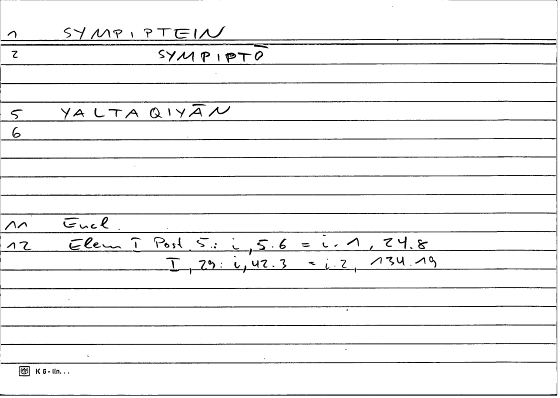 1 SYMPIPTEIN
2 SYMPIPTŌ
5 YALTAQIYĀN
6
11 Eucl.
12 Elem I Post. 5.: i, 5.6 = i. 1, 24.8
I, 29: i, 42.3 = i. 2, 134.19
K 6 - lin...